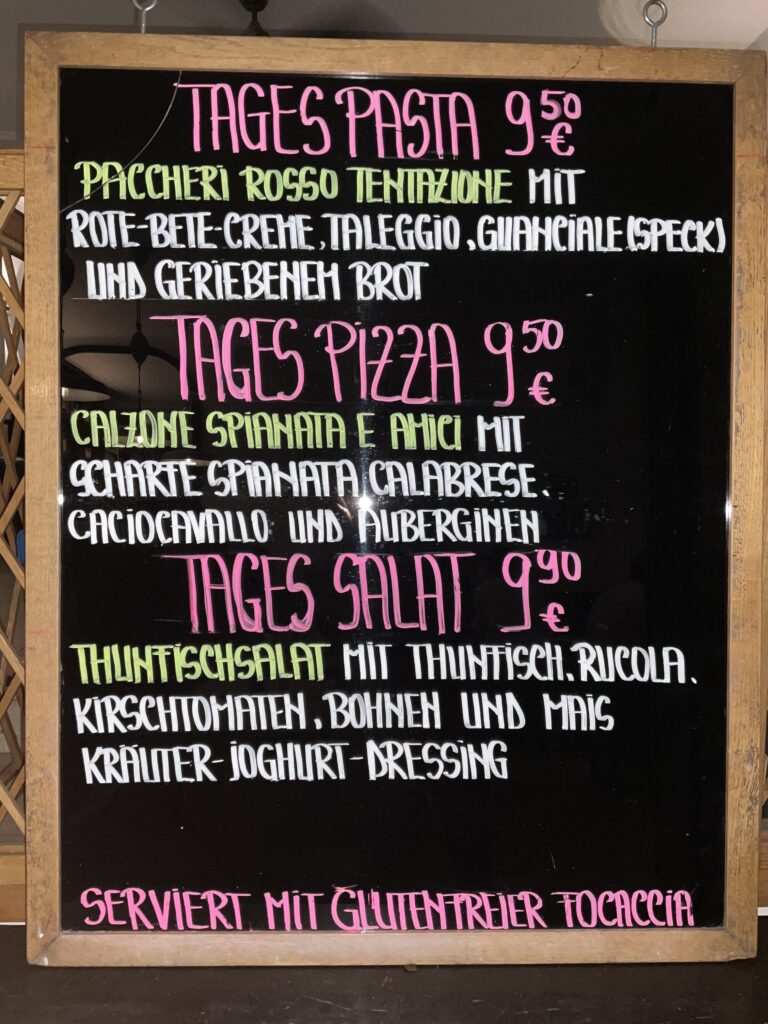 TAGES PASTA 9 50 €
PACCHERI ROSSO TENTAZIONE MIT
ROTE-BETE-CREME, TALEGGIO, GUANCIALE (SPECK)
UND GERIEBENEM BROT
TAGES PIZZA 9 50 €
CALZONE SPIANATA E AMICI MIT
SCHARFE SPIANATA CALABRESE,
CACIOCAVALLO UND AUBERGINEN
TAGES SALAT 9 90 €
THUNFISCHSALAT MIT THUNFISCH, RUCOLA,
KIRSCHTOMATEN, BOHNEN UND MAIS
KRÄUTER-JOGHURT-DRESSING
SERVIERT MIT GLUTENFREIER FOCACCIA